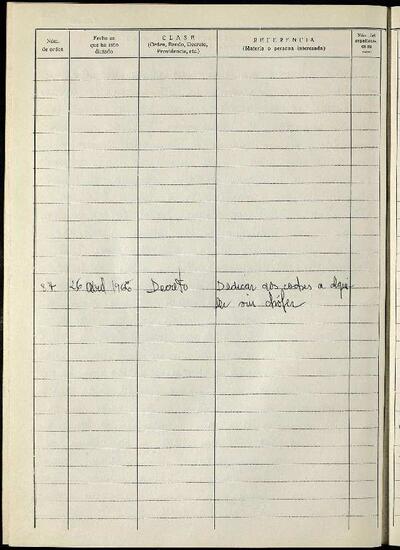 Núm. de orden
Fecha en que ha sido dictado
CLASE
(Orden, Bando, Decreto, Providencia, etc.)
REFERENCIA
(Materia o persona interesada)
Núm. del
37 26 abril 1966 Decreto Dedicar dos coches a alqui
ler sin chófer